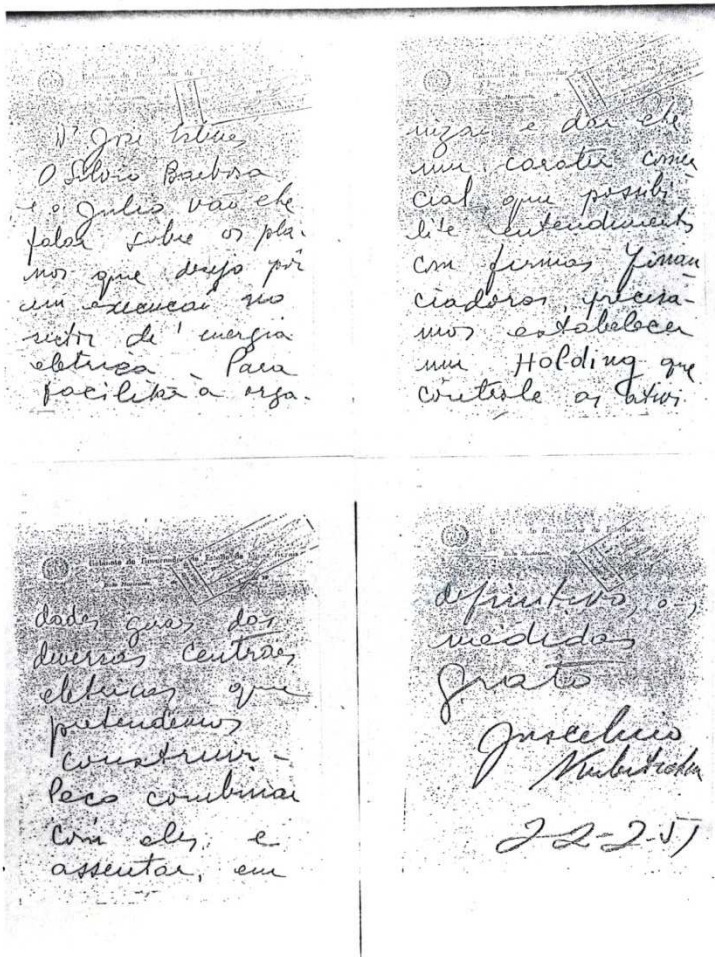 Gabinete do Governador do Estado de Minas Gerais
Belo Horizonte,
Dr José Esteves
O Silvio Barbosa
e o Julio vão lhe
falar sobre os pla-
nos que desejo pôr
em execucaõ no
sector de energia
eletrica - Para
facilitar a orga-
Gabinete do Governador
Belo Horizonte, de
nizar e dar lhe
um carater comer
cial, que possibi
lite entendimentos
com firmas finan
ciadoras, precisa-
mos estabelecer
um Holding que
controle as ativi
Gabinete do Governador do Estado de Minas Gerais
Belo Horizonte,
dades gerais das
diversas centraes
eletricas que
pretendemos
construir -
Peço combinar
com eles, e
assentar, em
Governador do Estado
Belo Horizonte,
definitivo, as
medidas
Grato
Juscelino
Kubitschek
22-2-51